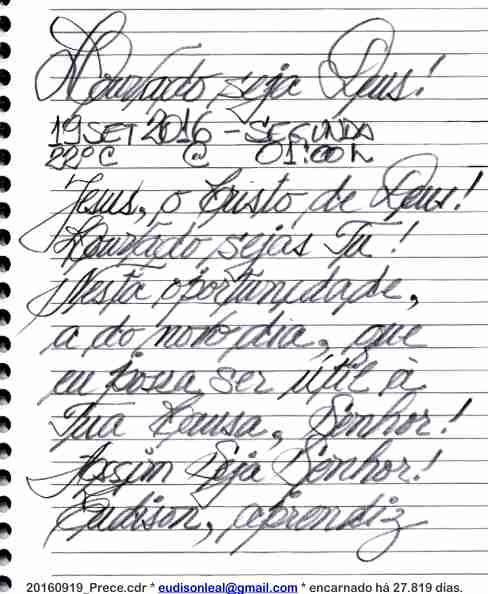 Louvado seja Deus!
19 SET 2016 - SEGUNDA
22°C @ 01:00h
Jesus, o Cristo de Deus!
Louvado sejas Tu!
Nesta oportunidade,
a do novo dia, que
eu possa ser útil à
Tua Causa, Senhor!
Assim Seja Senhor!
Eudison, aprendiz
20160919_Prece.cdr * eudisonleal@gmail.com * encarnado há 27.819 dias.